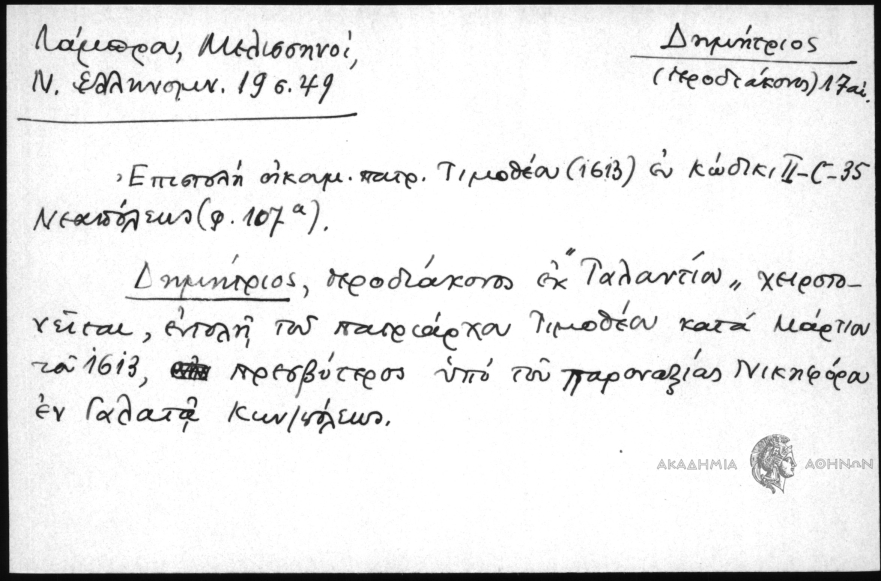 Λάμπρου, Μελισσηνοί,
Ν. Ἑλληνομν. 19 σ. 49
Δημήτριος
(ἱεροδιάκονος) 17 αἰ.
Ἐπιστολή οἰκουμ. πατρ. Τιμοθέου (1613) ἐν κώδικι II-C-35
Νεαπόλεως (φ. 107α).
Δημήτριος, ἱεροδιάκονος ἐκ "Ταλαντίου" χειροτο-
νεῖται, ἐντολῇ τοῦ πατριάρχου Τιμοθέου κατά Μάρτιον
τοῦ 1613, πρεσβύτερος ὑπό τοῦ Παροναξίας Νικηφόρου
ἐν Γαλατᾷ Κων/πόλεως.
ΑΚΑΔΗΜΙΑ ΑΘΗΝΩΝ